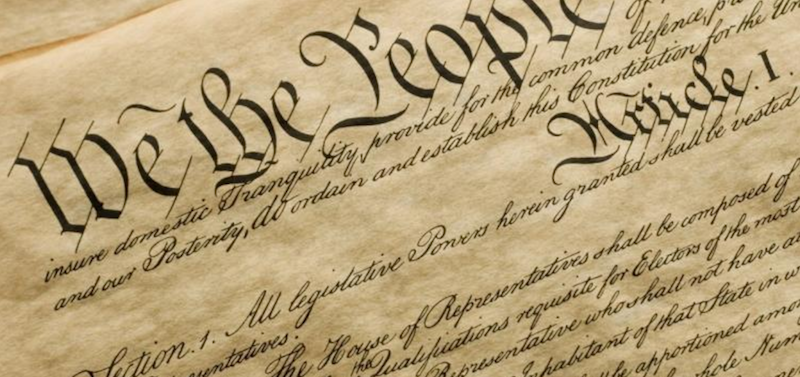 We the People
insure domestic Tranquility, provide for the common defence,
and our Posterity, do ordain and establish this Constitution for the
Article. I.
Section. 1. All legislative Powers herein granted shall be vested
The House of Representatives shall be composed of
Qualifications requisite for Electors of the most
Representative who shall not have
Inhabitant of that State in
be apportioned
whole Num